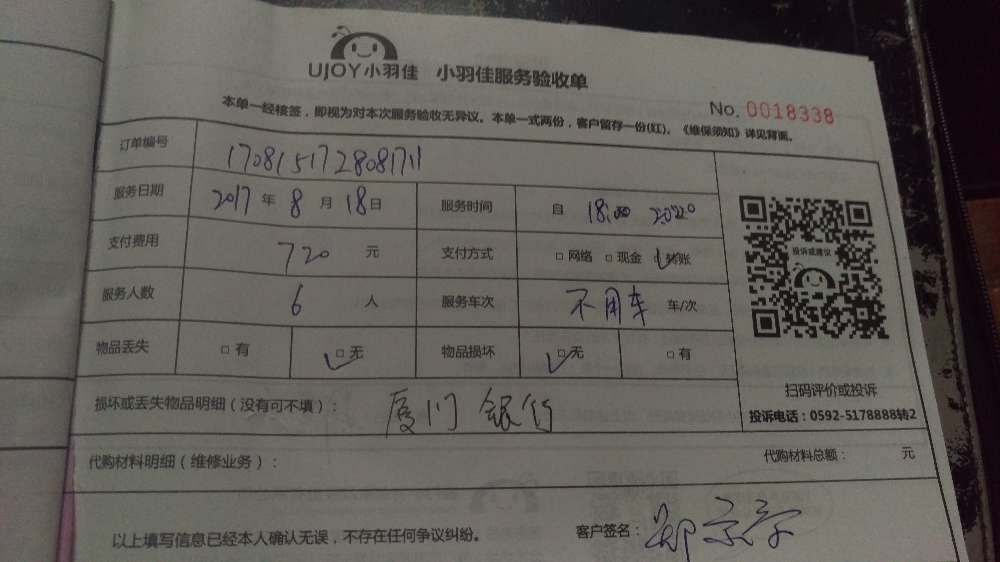 UJOY小羽佳 小羽佳服务验收单
No. 0018338
本单一经接签，即视为对本次服务验收无异议。本单一式两份，客户留存一份(红)。《维保须知》详见背面。
订单编号 1708151728081711
服务日期 2017年8月18日 服务时间 自 18:00
支付费用 720 元 支付方式 □网络 □现金 转账
服务人数 6 人 服务车次 不用车 车/次
物品丢失 □有 □无 物品损坏 □无 □有
投诉或建议
扫码评价或投诉
投诉电话：0592-5178888转2
损坏或丢失物品明细（没有可不填）： 厦门银行
代购材料明细（维修业务）： 代购材料总额： 元
以上填写信息已经本人确认无误，不存在任何争议纠纷。 客户签名：